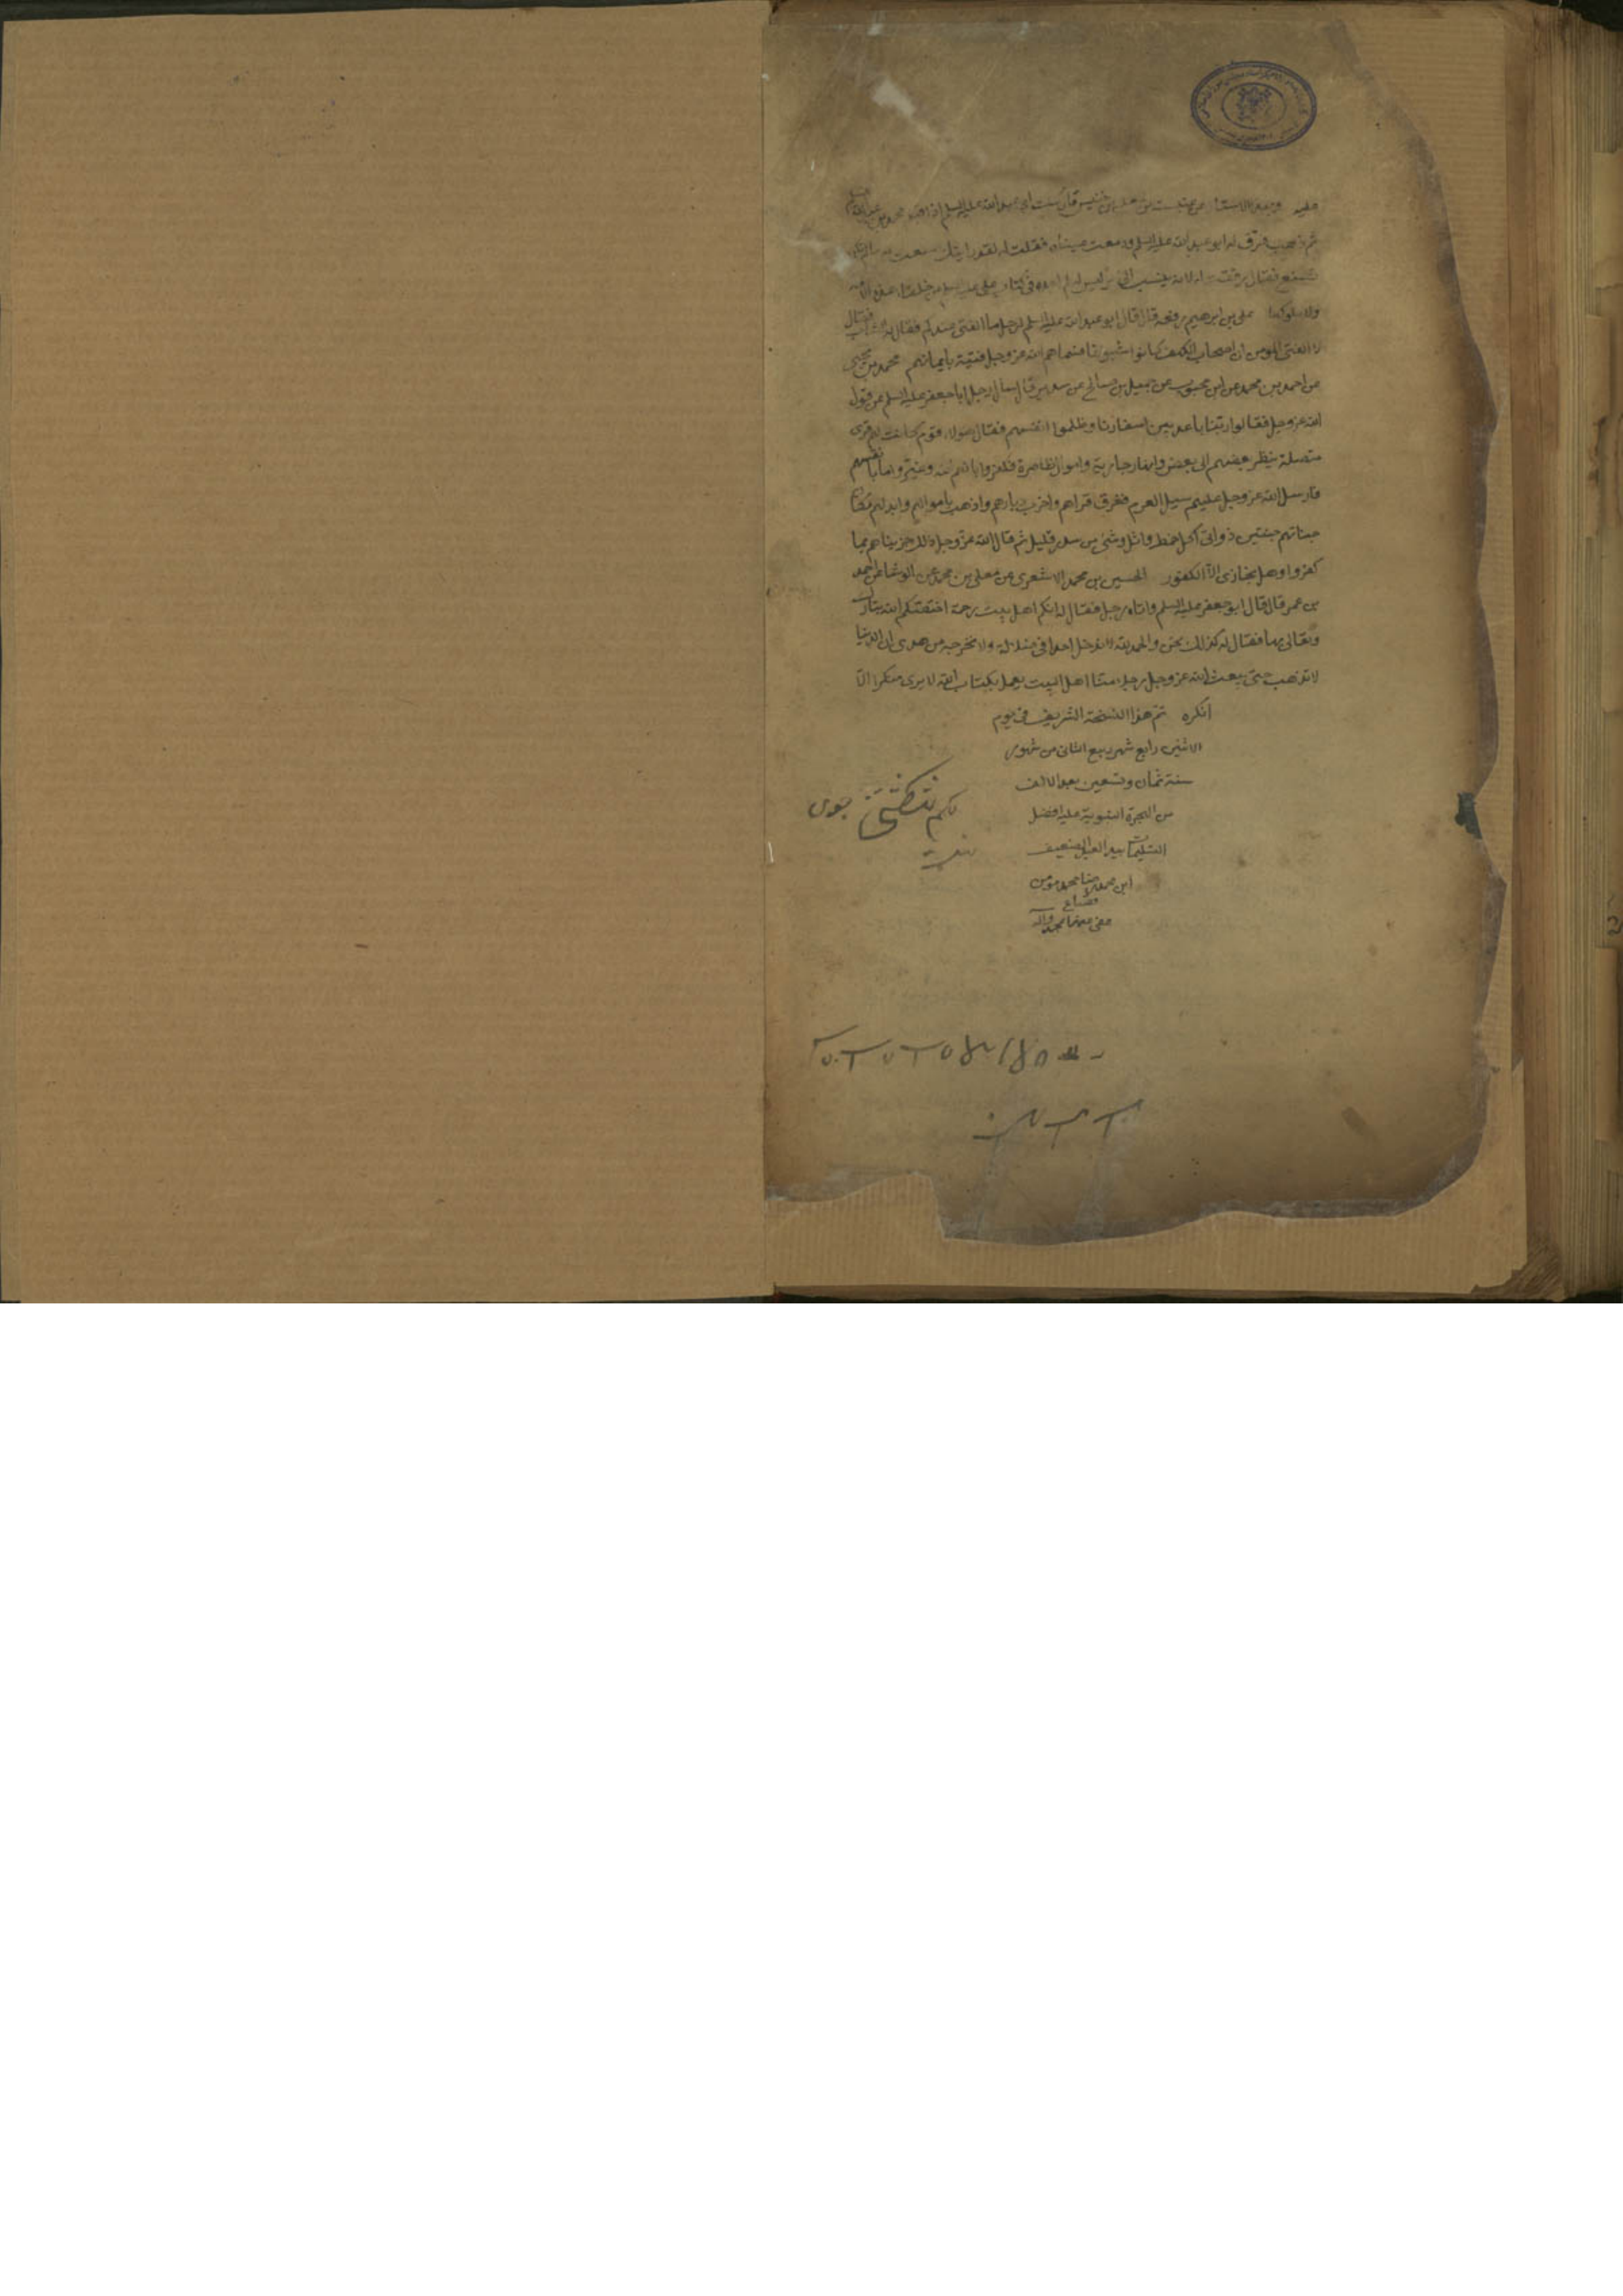 عليه عن عنبسة عن معلى بن خنيس قال كنت ابى عبد الله عليه السلم اذ اقبل محمد بن عبد الله
ثم ذهب فرق له ابو عبد الله عليه السلم ودمعت عيناه فقلت له لقد رايتك صنعت به ما لم تكن
تصنع فقال رققت له لانه ينسب الى امر ليس له لم اجده فى كتاب على عليه السلم من خلفاء هذه الامة
ولا ملوكها على بن ابرهيم رفعه قال قال ابو عبد الله عليه السلم لرجل ما الفتى عندكم فقال له الشاب فقال
لا الفتى المومن ان اصحاب الكهف كانوا شيوخا فسماهم الله عز وجل فتية بايمانهم محمد بن يحيى
عن احمد بن محمد عن ابن محبوب عن جميل بن صالح عن سدير قال سال رجل ابا جعفر عليه السلم عن قول
الله عز وجل فقالوا ربنا باعد بين اسفارنا وظلموا انفسهم فقال هولاء قوم كانت لهم قرى
متصلة ينظر بعضهم الى بعض وانهار جارية واموال ظاهرة فكفروا بانعم الله وغيروا ما بانفسهم
فارسل الله عز وجل عليهم سيل العرم فغرق قراهم واخرب ديارهم واذهب باموالهم وابدلهم مكان
جناتهم جنتين ذواتى اكل خمط واثل وشئ من سدر قليل ثم قال الله عز وجل ذلك جزيناهم بما
كفروا وهل يجازى الا الكفور الحسين بن محمد الاشعرى عن معلى بن محمد عن الوشا عن احمد
بن عمر قال قال ابو جعفر عليه السلم واتاه رجل فقال له انكم اهل بيت رحمة اختصكم الله تبارك
وتعالى بها فقال له كذلك نحن والحمد لله لا ندخل احدا فى ضلالة ولا نخرجه من هدى ان الدنيا
لا تذهب حتى يبعث الله عز وجل رجلا منا اهل البيت يعمل بكتاب الله لا يرى منكرا الا
انكره تم هذا النسخة الشريف فى يوم
الاثنين رابع شهر ربيع الثانى من شهور
سنة ثمان وتسعين بعد الالف
من الهجرة النبوية عليه افضل
التسليمات بيد العبد الضعيف
ابن محمد رضا محمد مومن
عفى عنهما بمحمد وآله